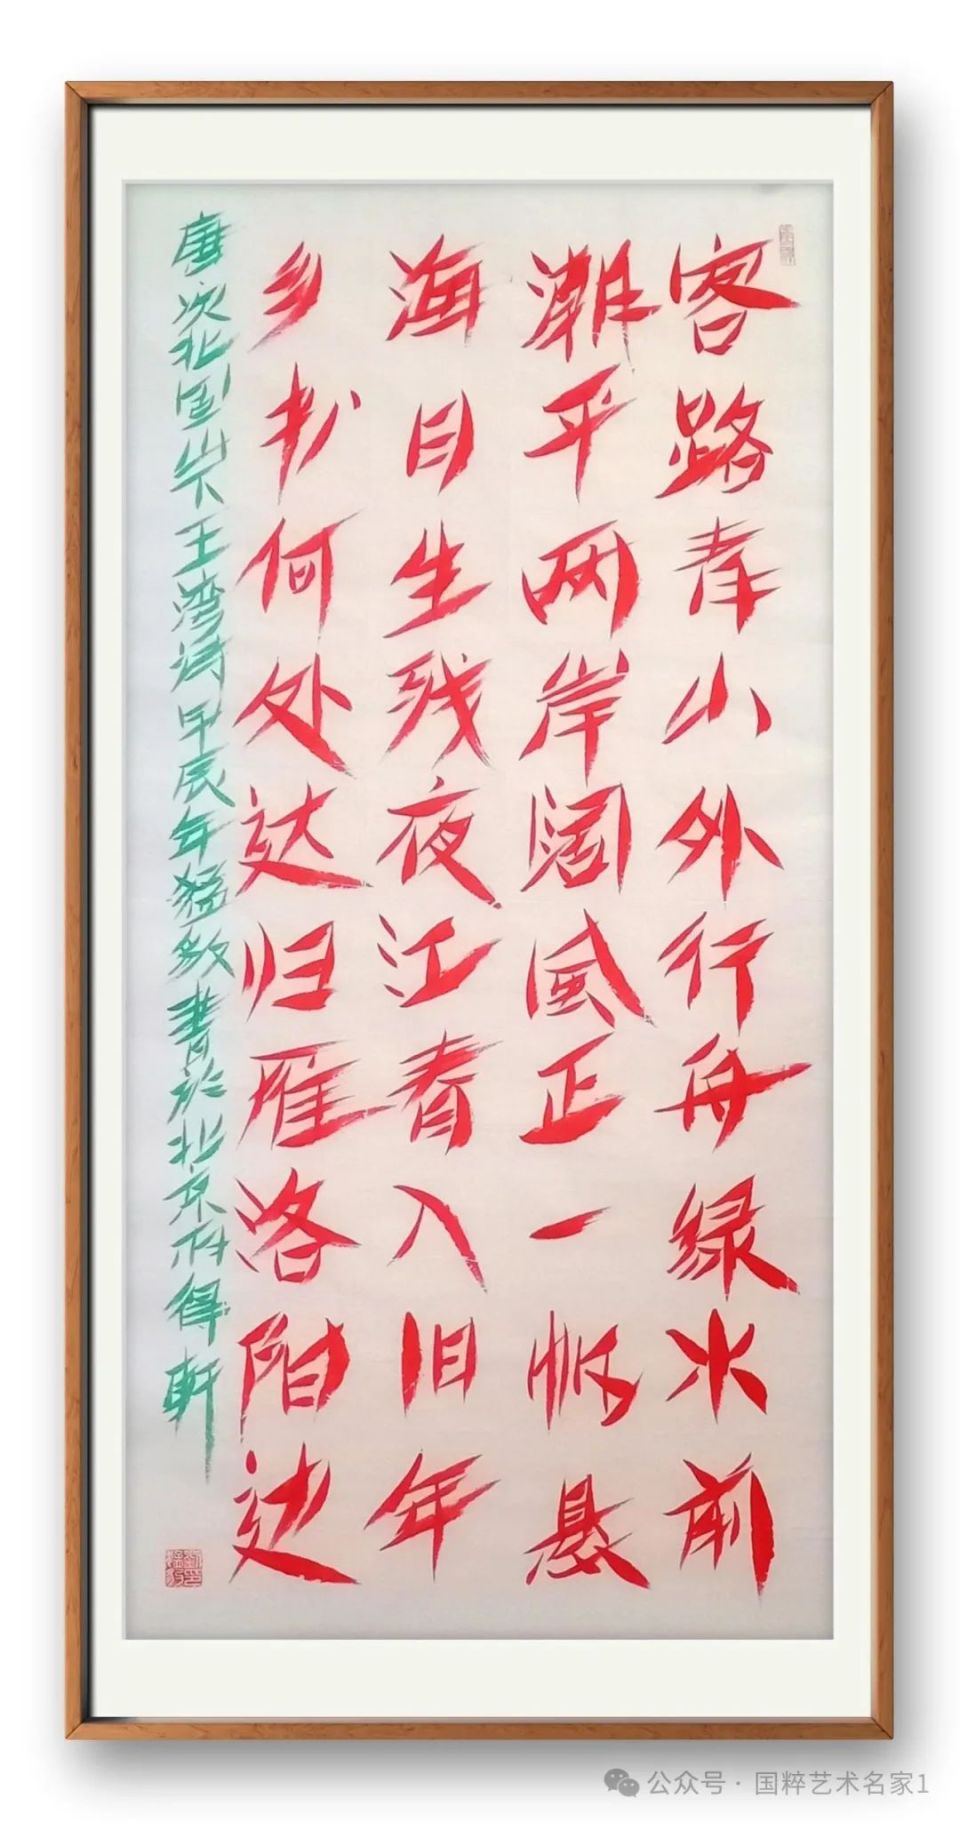 客路青山外行舟绿水前
潮平两岸阔風正一帆悬
海日生残夜江春入旧年
乡书何处达归雁洛阳边
唐次北固山下王湾诗甲辰年猛書於北京得軒
公众号 · 国粹艺术名家1